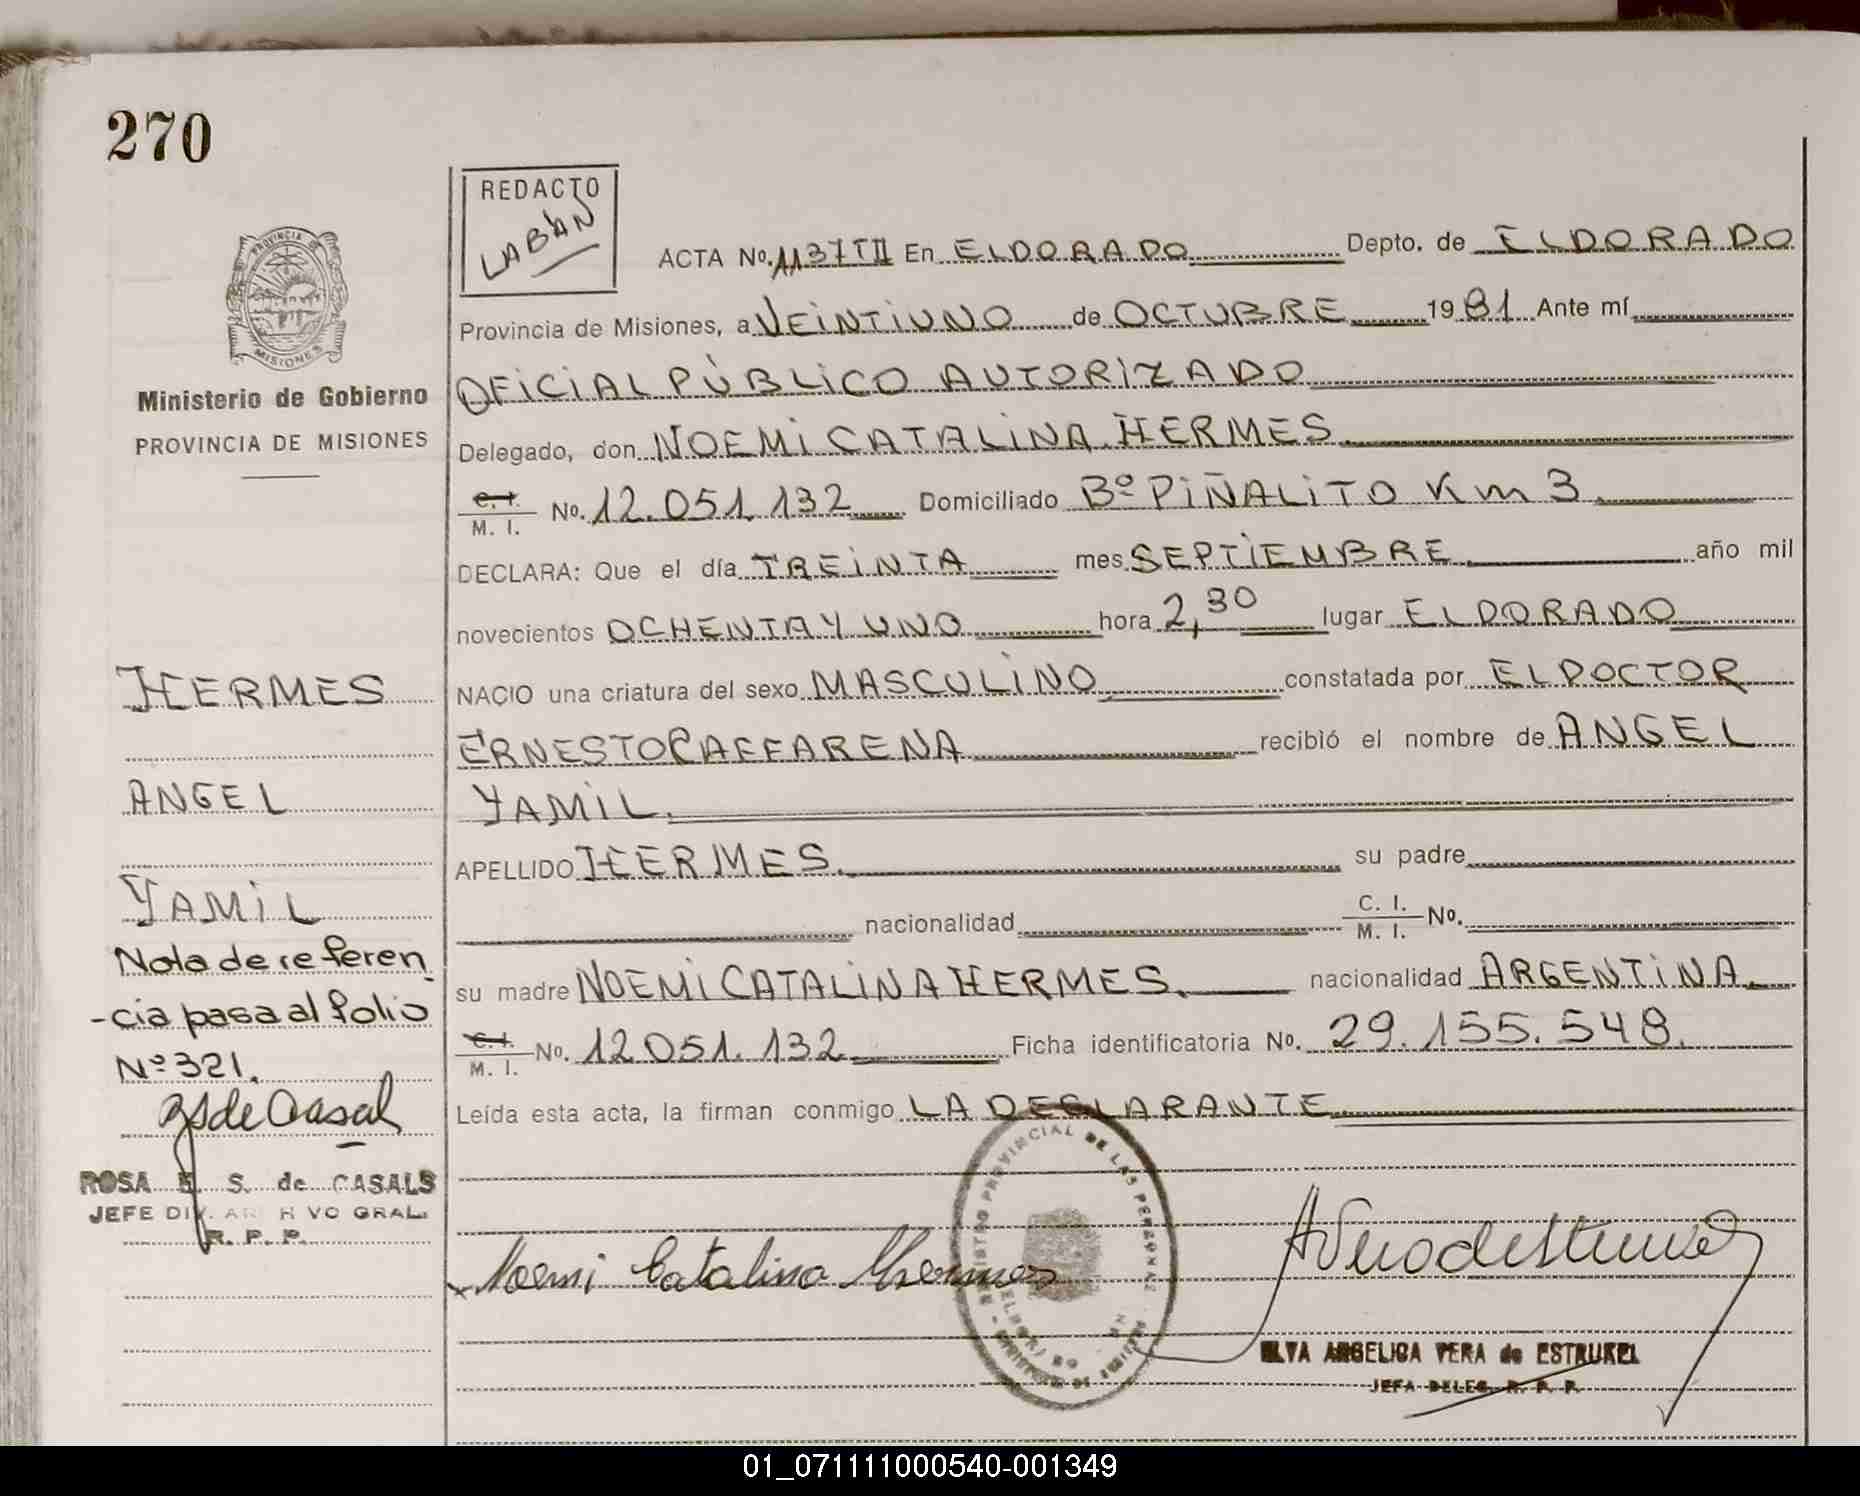 270
REDACTO
LABAN
PROVINCIA DE
MISIONES
Ministerio de Gobierno
PROVINCIA DE MISIONES
ACTA No. 1137 T II En ELDORADO Depto. de ELDORADO
Provincia de Misiones, a VEINTIUNO de OCTUBRE 1981 Ante mí
OFICIAL PÚBLICO AUTORIZADO
Delegado, don NOEMI CATALINA HERMES
C. I.
M. I. No. 12.051.132 Domiciliado Bº PIÑALITO Km 3
DECLARA: Que el día TREINTA mes SEPTIEMBRE año mil
novecientos OCHENTA Y UNO hora 2,30 lugar ELDORADO
NACIO una criatura del sexo MASCULINO constatada por EL DOCTOR
ERNESTO CAFFARENA recibió el nombre de ANGEL
YAMIL.
APELLIDO HERMES. su padre
nacionalidad C. I.
M. I. No.
su madre NOEMI CATALINA HERMES. nacionalidad ARGENTINA.
C. I.
M. I. No. 12051.132 Ficha identificatoria No. 29.155.548.
Leída esta acta, la firman conmigo LA DECLARANTE
HERMES
ANGEL
YAMIL
Nota de referen
-cia pasa al folio
Nº 321.
ROSA E. S. de CASALS
JEFE DIV. ARCHIVO GRAL.
R. P. P.
Noemi Catalina Hermes
REGISTRO PROVINCIAL DE LAS PERSONAS
ELVA ANGELICA VERA de ESTRUKEL
JEFA DELEG. R. P. P.
01_071111000540-001349